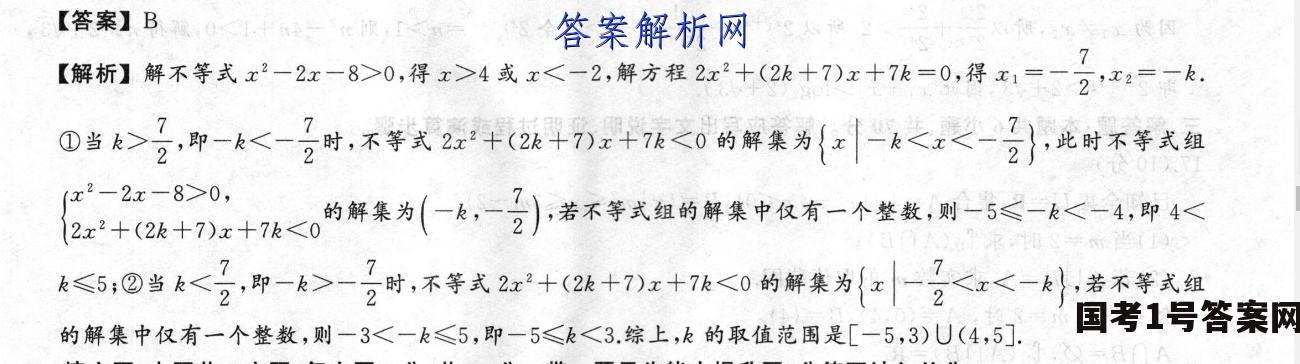 【答案】B
答案解析网
【解析】解不等式 x²-2x-8>0,得 x>4 或 x<-2,解方程 2x²+(2k+7)x+7k=0,得 x₁=-7/2,x₂=-k.
①当 k>7/2,即-k<-7/2时,不等式 2x²+(2k+7)x+7k<0 的解集为{x|-k<x<-7/2},此时不等式组
{x²-2x-8>0,
2x²+(2k+7)x+7k<0 的解集为(-k,-7/2),若不等式组的解集中仅有一个整数,则-5≤-k<-4,即 4<
k≤5;②当 k<7/2,即-k>-7/2时,不等式 2x²+(2k+7)x+7k<0 的解集为{x|-7/2<x<-k},若不等式组
的解集中仅有一个整数,则-3<-k≤5,即-5≤k<3.综上,k 的取值范围是[-5,3)∪(4,5].
国考1号答案网